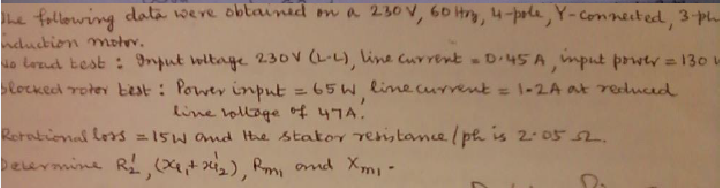 The following data were obtained on a 230V, 60 Hz, 4-pole, Y-connected, 3-ph
induction motor.
No load test : Input voltage 230V (L-L), line current = 0.45A, input power = 130
Blocked rotor test : Power input = 65W, line current = 1.2A at reduced
line voltage of 47A.
Rotational loss = 15W and the stator resistance/ph is 2.05 Ω.
Determine R₂', (x₁ + x₂'), Rm₁ and Xm₁.